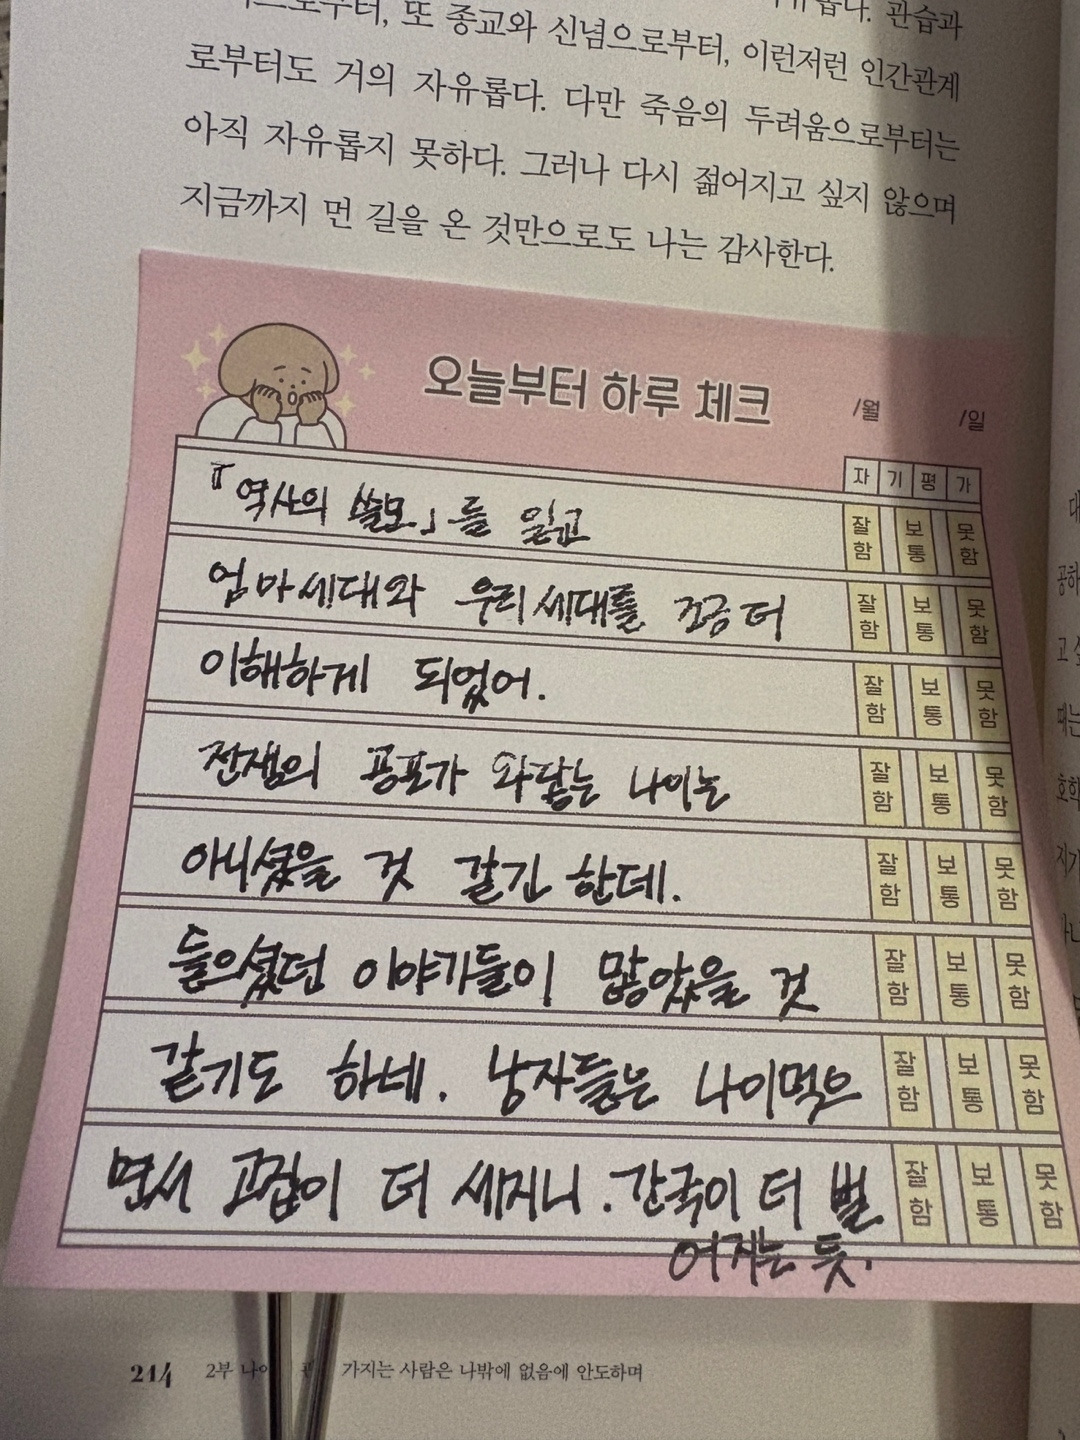 로부터, 또 종교와 신념으로부터, 이런저런 인간관계
롭다. 관습과
로부터도 거의 자유롭다. 다만 죽음의 두려움으로부터는
아직 자유롭지 못하다. 그러나 다시 젊어지고 싶지 않으며
지금까지 먼 길을 온 것만으로도 나는 감사한다.
오늘부터 하루 체크 /월 /일
자 기 평 가
『역사의 쓸모』를 읽고 잘함 보통 못함
엄마세대와 우리세대를 조금 더 잘함 보통 못함
이해하게 되었어. 잘함 보통 못함
전쟁의 공포가 와닿는 나이는 잘함 보통 못함
아니셨을 것 같긴 한데. 잘함 보통 못함
들으셨던 이야기들이 많았을 것 잘함 보통 못함
같기도 하네. 남자들은 나이먹으 잘함 보통 못함
면서 고집이 더 세지니. 간극이 더 벌 잘함 보통 못함
어지는 듯.
214 2부 나이 가지는 사람은 나밖에 없음에 안도하며